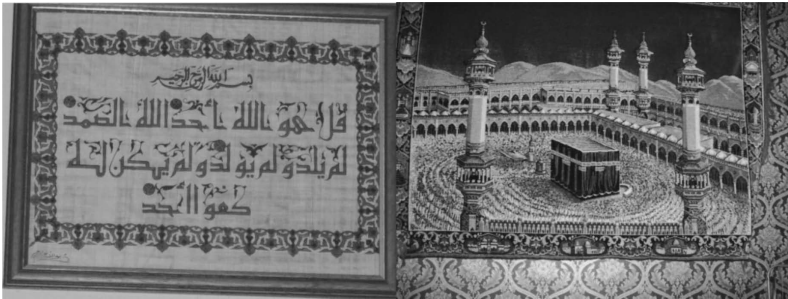 بسم الله الرحمن الرحيم
قل هو الله أحد الله الصمد
لم يلد و لم يولد و لم يكن له
كفوا أحد